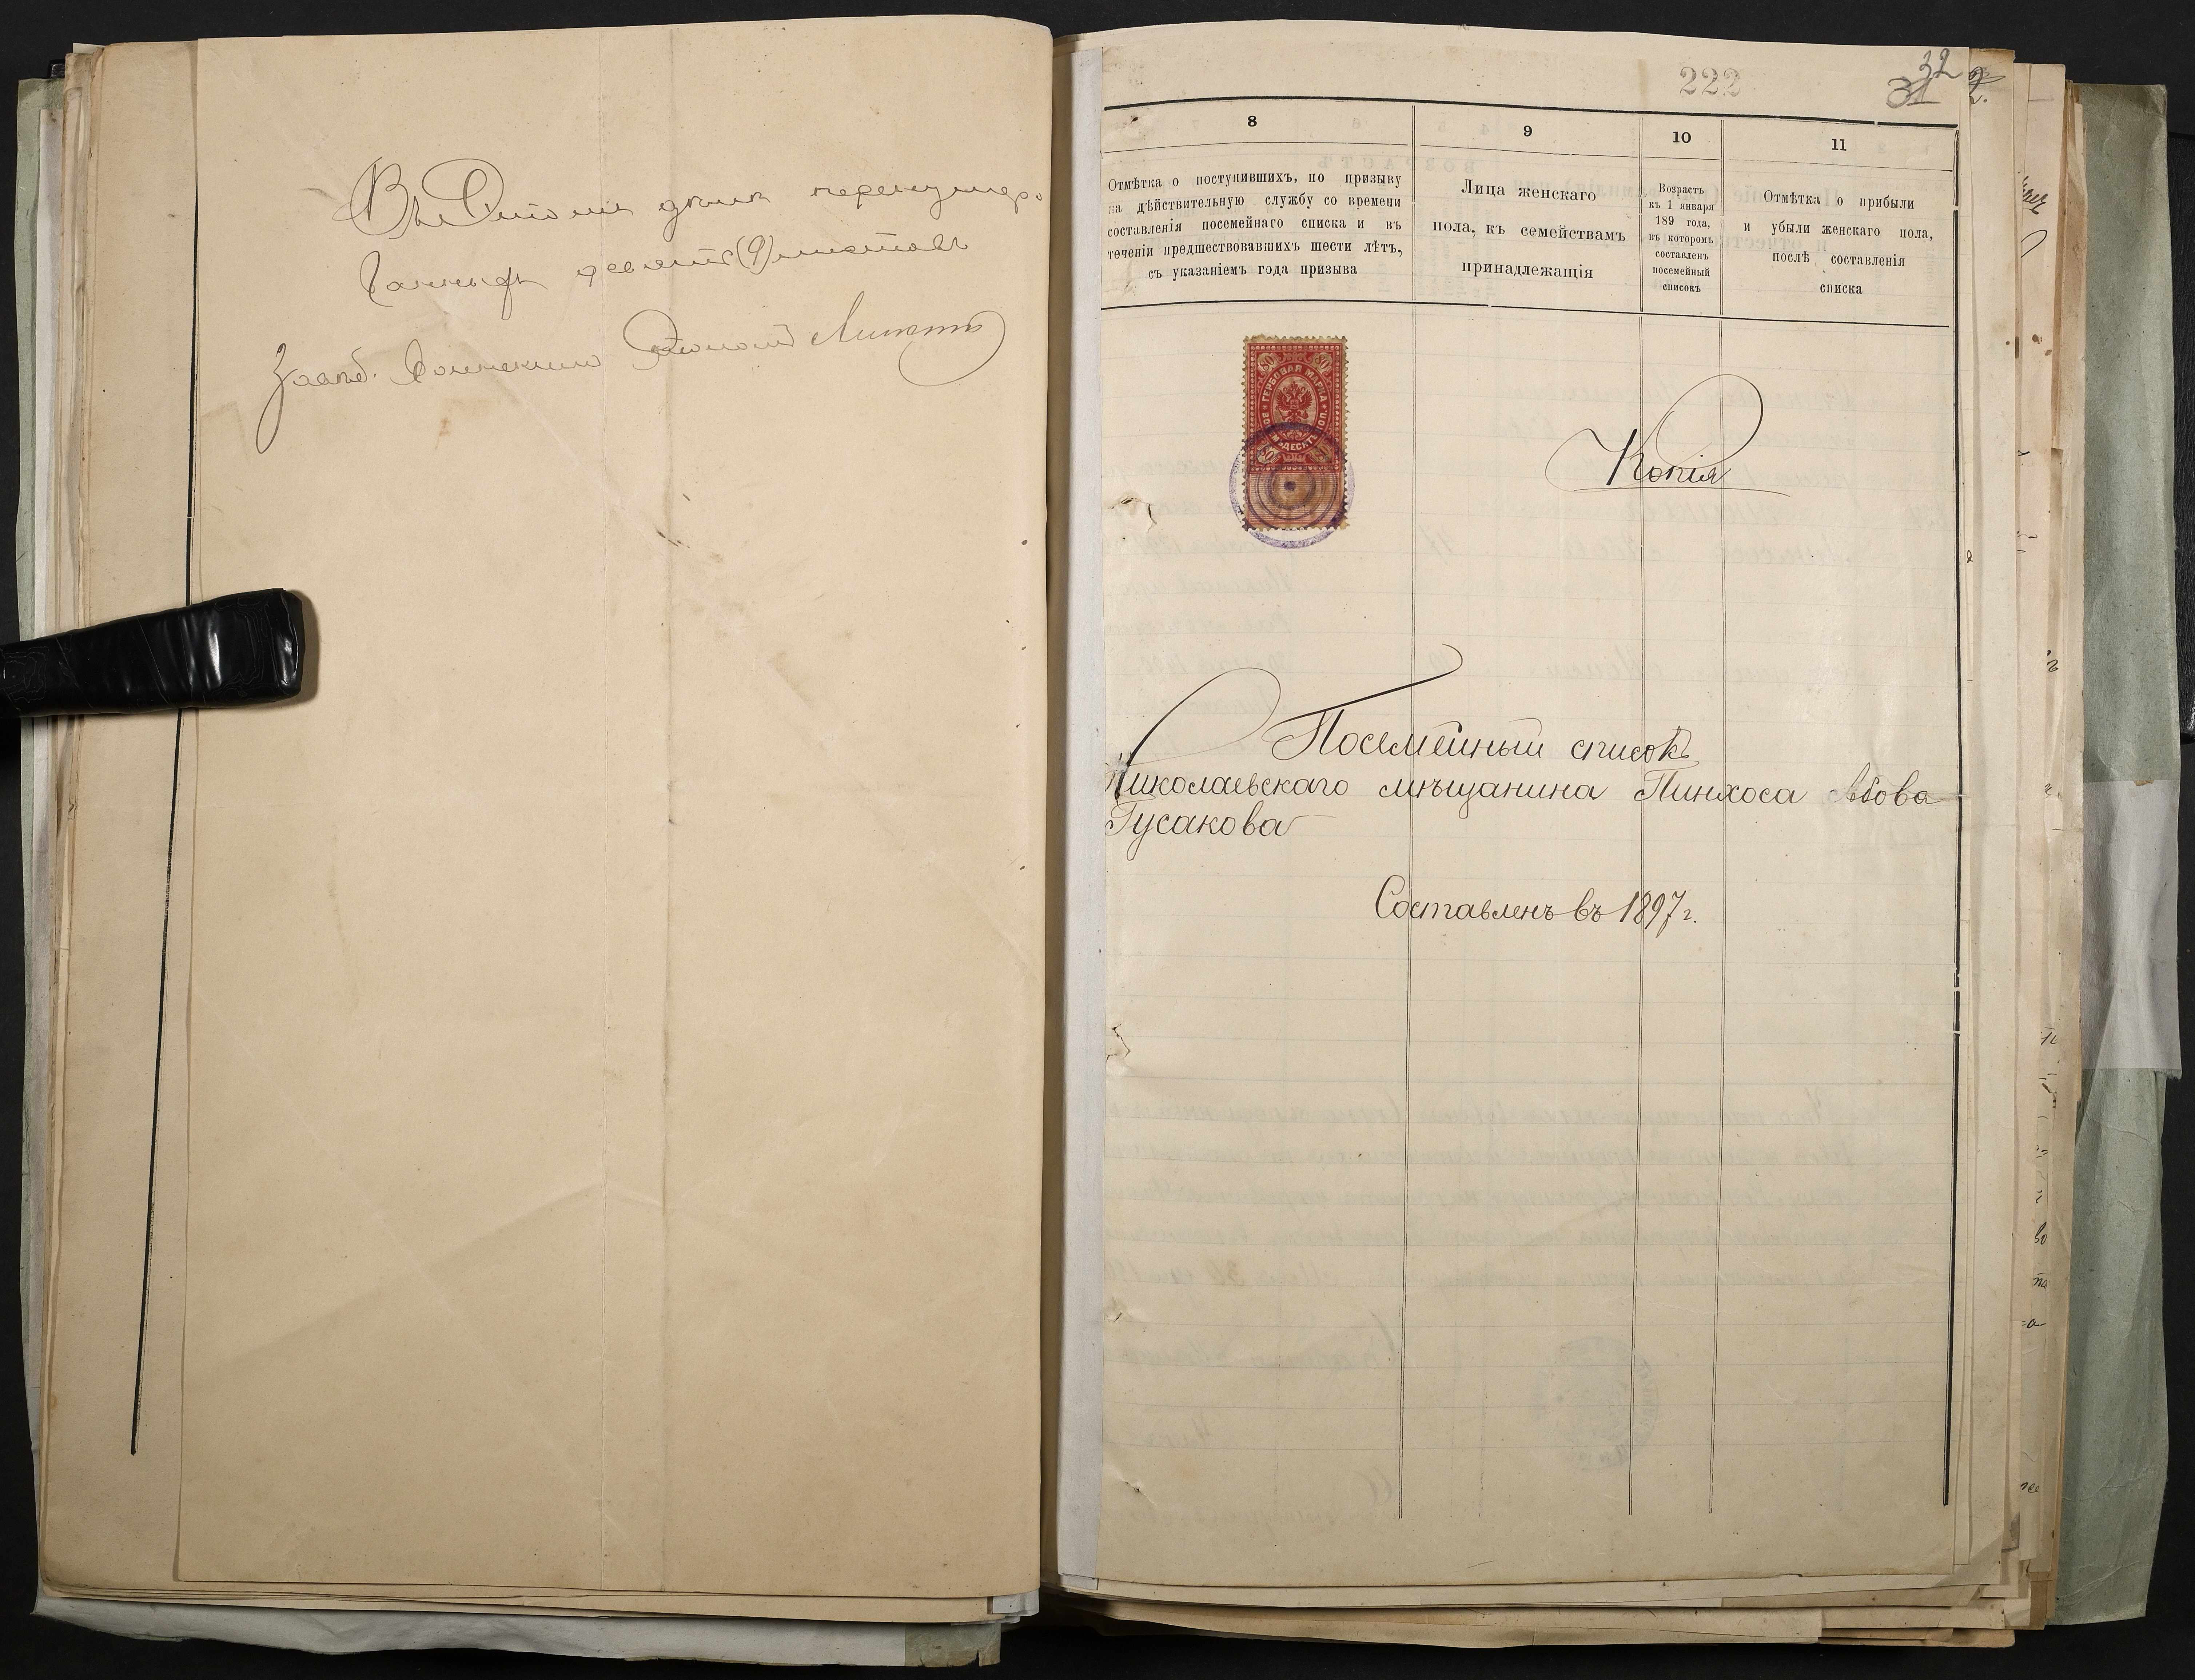 Въ Этомъ дѣлѣ перенумеро
ванныхъ девять (9) листовъ
Завѣд.
222
32
31
8
9
10
11
Отмѣтка о поступившихъ, по призыву
на дѣйствительную службу со времени
составленія посемейнаго списка и въ
теченіи предшествовавшихъ шести лѣтъ,
съ указаніемъ года призыва
Лица женскаго
пола, къ семействамъ
принадлежащія
Возрастъ
къ 1 января
189 года,
въ которомъ
составленъ
посемейный
списокъ
Отмѣтка о прибыли
и убыли женскаго пола,
послѣ составленія
списка
80 80
ГЕРБОВАЯ МАРКА
ВОСЕМЬДЕСЯТЪ КОП.
Копія
Посемейный списокъ
Николаевскаго мѣщанина Пинхоса Абова
Гусакова
Составленъ въ 1897 г.